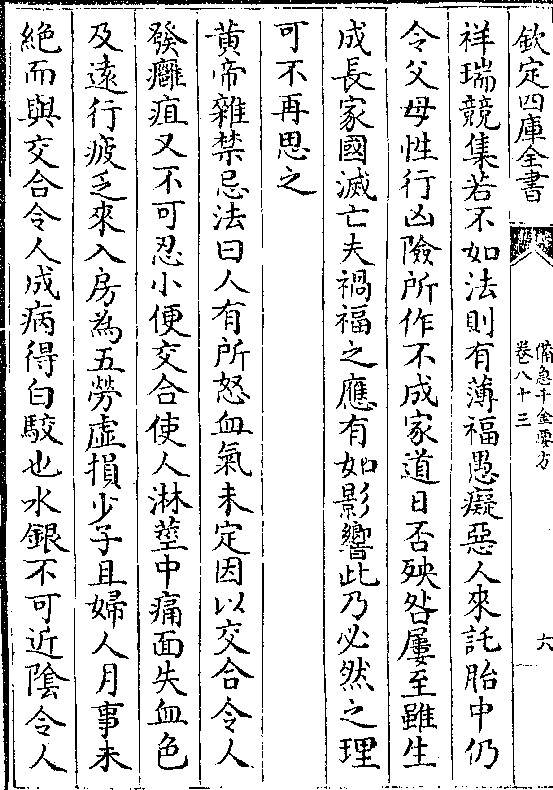 欽定四庫全書
備急千金要方
卷八十三
六
祥瑞競集若不如法則有薄福愚癡惡人來託胎中仍
令父母性行凶險所作不成家道日否殃咎屢至雖生
成長家國滅亡夫禍福之應有如影響此乃必然之理
可不再思之
黄帝雜禁忌法曰人有所怒血氣未定因以交合令人
發癰疽又不可忍小便交合使人淋莖中痛面失血色
及遠行疲乏來入房為五勞虛損少子且婦人月事未
絕而與交合令人成病得白駮也水銀不可近陰令人